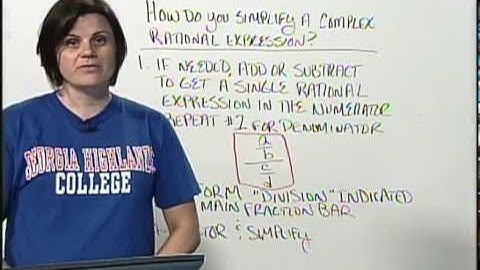 HOW DO YOU SIMPLIFY A COMPLEX
RATIONAL EXPRESSION?
1. IF NEEDED, ADD OR SUBTRACT
TO GET A SINGLE RATIONAL
EXPRESSION IN THE NUMERATOR
REPEAT #1 FOR DENOMINATOR
a
b
c
d
FORM "DIVISION" INDICATED
MAIN FRACTION BAR
TOR & SIMPLIFY
GEORGIA HIGHLANDS
COLLEGE